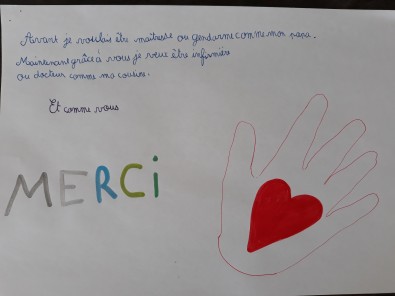 Avant je voulais être maîtresse ou gendarme comme mon papa.
Maintenant grâce à vous je veux être infirmière
ou docteur comme ma cousine.
Et comme vous
MERCi